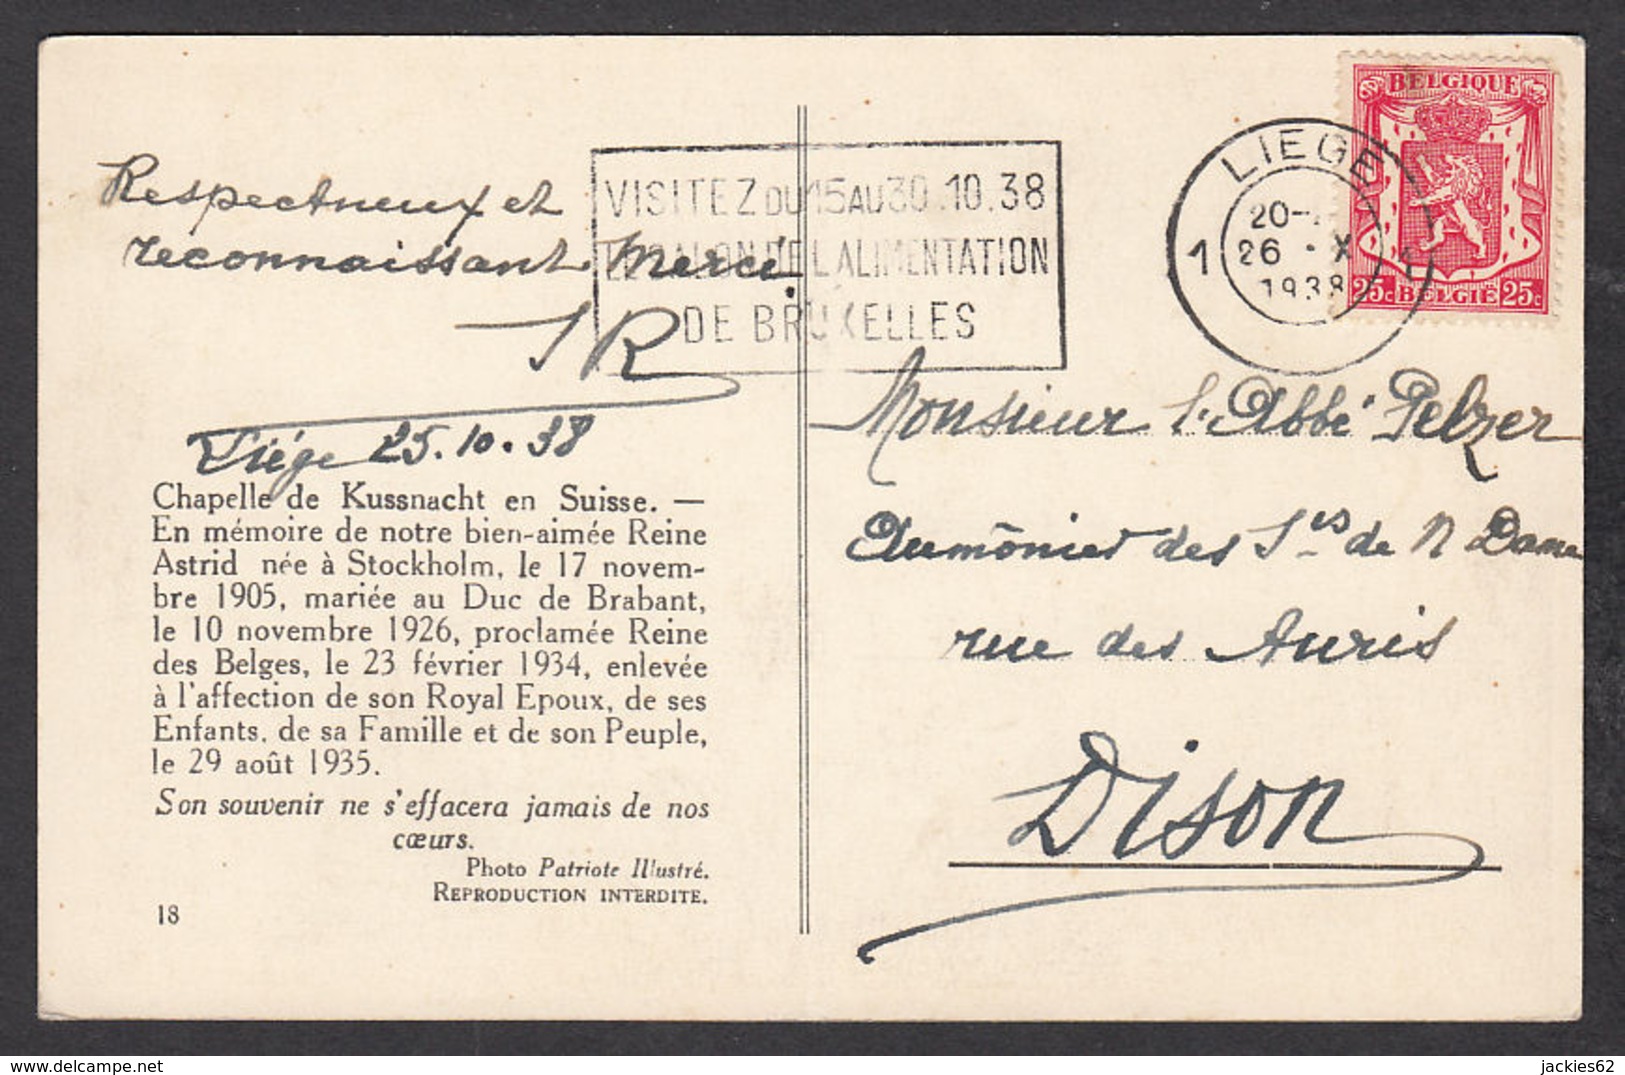 BELGIQUE
25c BELGIE 25c
LIEGE
1 1
20-
26 . X
1938
VISITEZ DU 15 AU 30.10.38
LE SALON DE L'ALIMENTATION
DE BRUXELLES
Respectueux et
reconnaissant Merci.
JR
Liége 25.10.38
Chapelle de Kussnacht en Suisse. —
En mémoire de notre bien-aimée Reine
Astrid née à Stockholm, le 17 novem-
bre 1905, mariée au Duc de Brabant,
le 10 novembre 1926, proclamée Reine
des Belges, le 23 février 1934, enlevée
à l'affection de son Royal Epoux, de ses
Enfants, de sa Famille et de son Peuple,
le 29 août 1935.
Son souvenir ne s'effacera jamais de nos
cœurs.
Photo Patriote Illustré.
REPRODUCTION INTERDITE.
18
Monsieur l'Abbé Pelzer
Aumônier des Srs de N Dame
rue des
Dison
jackies62